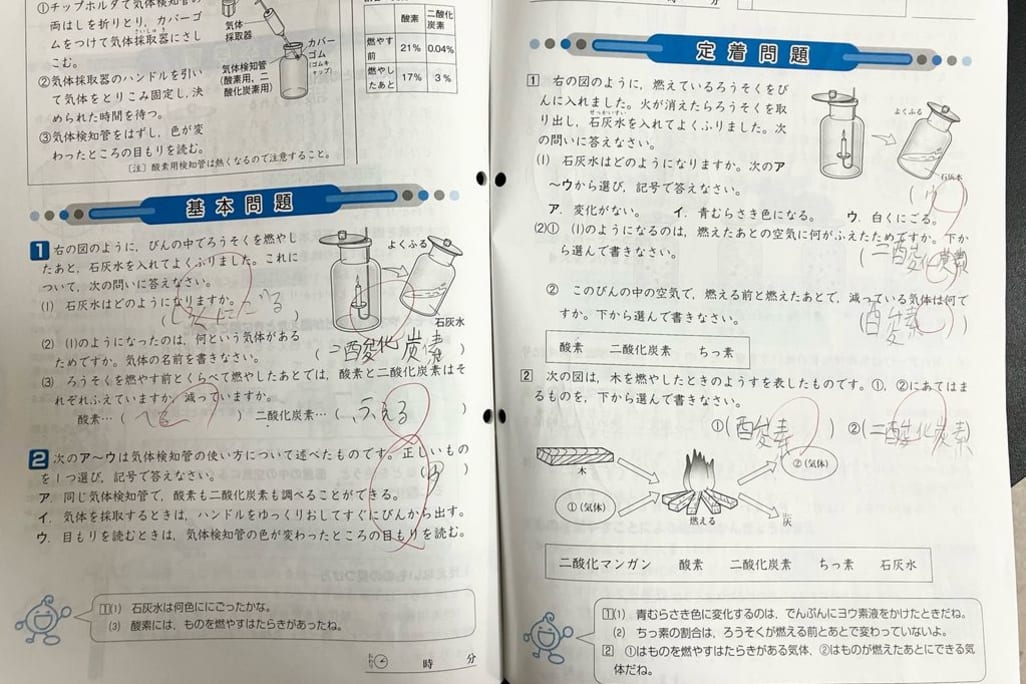 ①チップホルダで気体検知管の
両はしを折りとり，カバーゴ
ムをつけて気体採取器にさし
こむ。
②気体採取器のハンドルを引い
て気体をとりこみ固定し，決
められた時間を待つ。
③気体検知管をはずし，色が変
わったところの目もりを読む。
〔注〕酸素用検知管は熱くなるので注意すること。
気体
採取器
カバー
ゴム
(ゴムキャップ)
気体検知管
(酸素用，二
酸化炭素用)
酸素 二酸化炭素
燃やす前 21% 0.04%
燃やしたあと 17% 3%
基本問題
1 右の図のように，びんの中でろうそくを燃やし
たあと，石灰水を入れてよくふりました。これに
ついて，次の問いに答えなさい。
(1) 石灰水はどのようになりますか。
よくふる
石灰水
(2) (1)のようになったのは，何という気体がある
ためですか。気体の名前を書きなさい。
(二酸化炭素)
(3) ろうそくを燃やす前とくらべて燃やしたあとでは，酸素と二酸化炭素はそ
れぞれふえていますか，減っていますか。
酸素…(へる) 二酸化炭素…(ふえる)
2 次のア〜ウは気体検知管の使い方について述べたものです。正しいもの
を1つ選び，記号で答えなさい。(ウ)
ア．同じ気体検知管で，酸素も二酸化炭素も調べることができる。
イ．気体を採取するときは，ハンドルをゆっくりおしてすぐにびんから出す。
ウ．目もりを読むときは，気体検知管の色が変わったところの目もりを読む。
1(1) 石灰水は何色ににごったかな。
(3) 酸素には，ものを燃やすはたらきがあったね。
おわり 時 分
時 分
定着問題
1 右の図のように，燃えているろうそくをび
んに入れました。火が消えたらろうそくを取
り出し，石灰水を入れてよくふりました。次
の問いに答えなさい。
よくふる
石灰水
(1) 石灰水はどのようになりますか。次のア
〜ウから選び，記号で答えなさい。
(ウ)
ア．変化がない。 イ．青むらさき色になる。 ウ．白くにごる。
(2)① (1)のようになるのは，燃えたあとの空気に何がふえたためですか。下か
ら選んで書きなさい。
(二酸化炭素)
② このびんの中の空気で，燃える前と燃えたあとで，減っている気体は何で
すか。下から選んで書きなさい。
(酸素)
酸素 二酸化炭素 ちっ素
2 次の図は，木を燃やしたときのようすを表したものです。①，②にあてはま
るものを，下から選んで書きなさい。
①(酸素) ②(二酸化炭素)
木
①(気体)
燃える
②(気体)
灰
二酸化マンガン 酸素 二酸化炭素 ちっ素 石灰水
1(1) 青むらさき色に変化するのは，でんぷんにヨウ素液をかけたときだね。
(2) ちっ素の割合は，ろうそくが燃える前とあとで変わっていないよ。
2 ①はものを燃やすはたらきがある気体，②はものが燃えたあとにできる気
体だね。